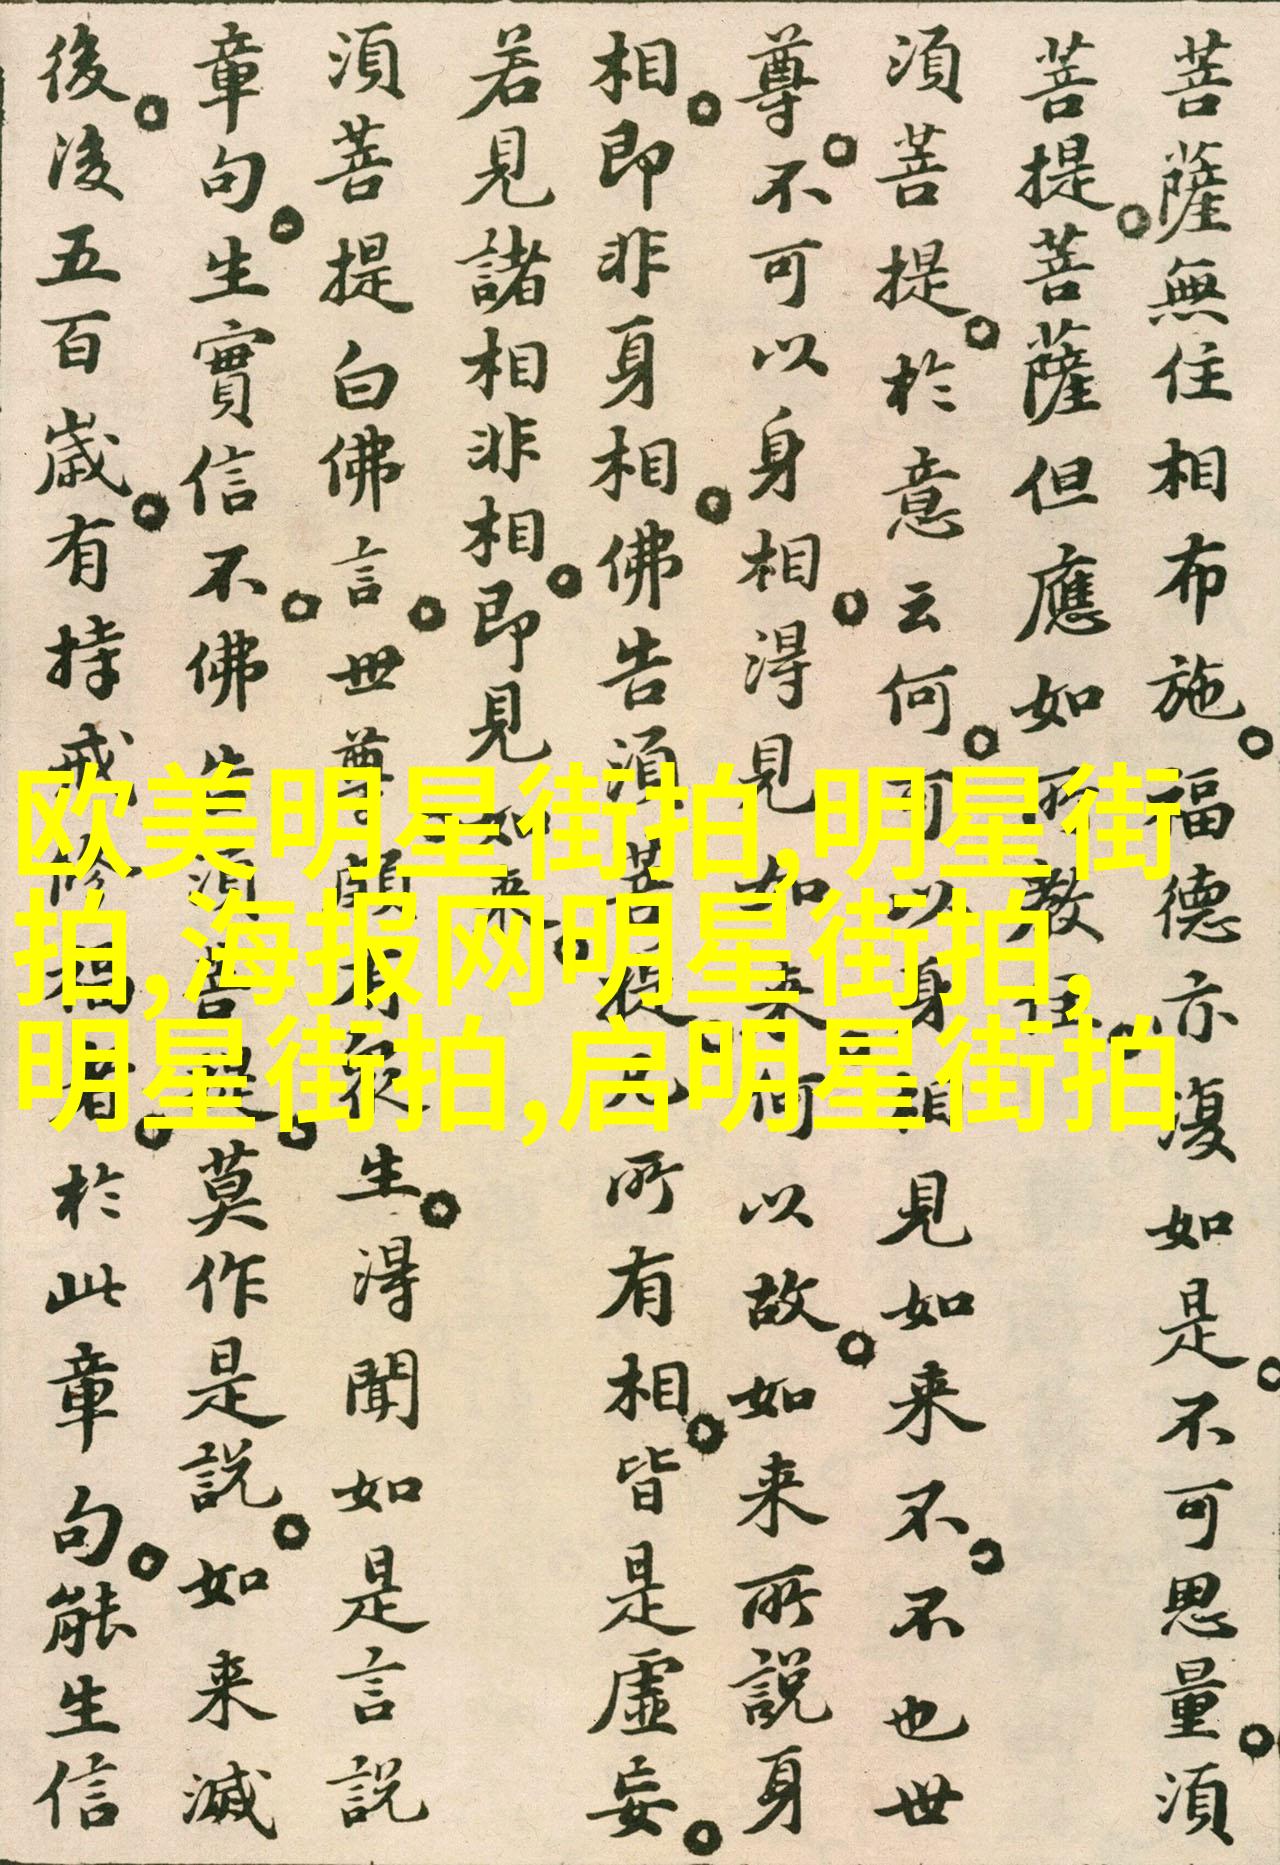 菩薩無住相布施。福德亦復如是。不可思量。須
菩提。菩薩但應如所教住。
須菩提。於意云何。可以身相見如来不。不也世
尊。不可以身相。得見如来。何以故。如来所說身
相。即非身相。佛告須菩提。凡所有相。皆是虛妄。
若見諸相非相。即見如来。
須菩提白佛言。世尊。頗有衆生。得聞如是言說
章句。生實信不。佛告須菩提。莫作是說。如来滅
後。後五百歲。有持戒修福者。於此章句。能生信
欧美明星街拍,明星街
拍,海报网明星街拍,
明星街拍,启明星街拍